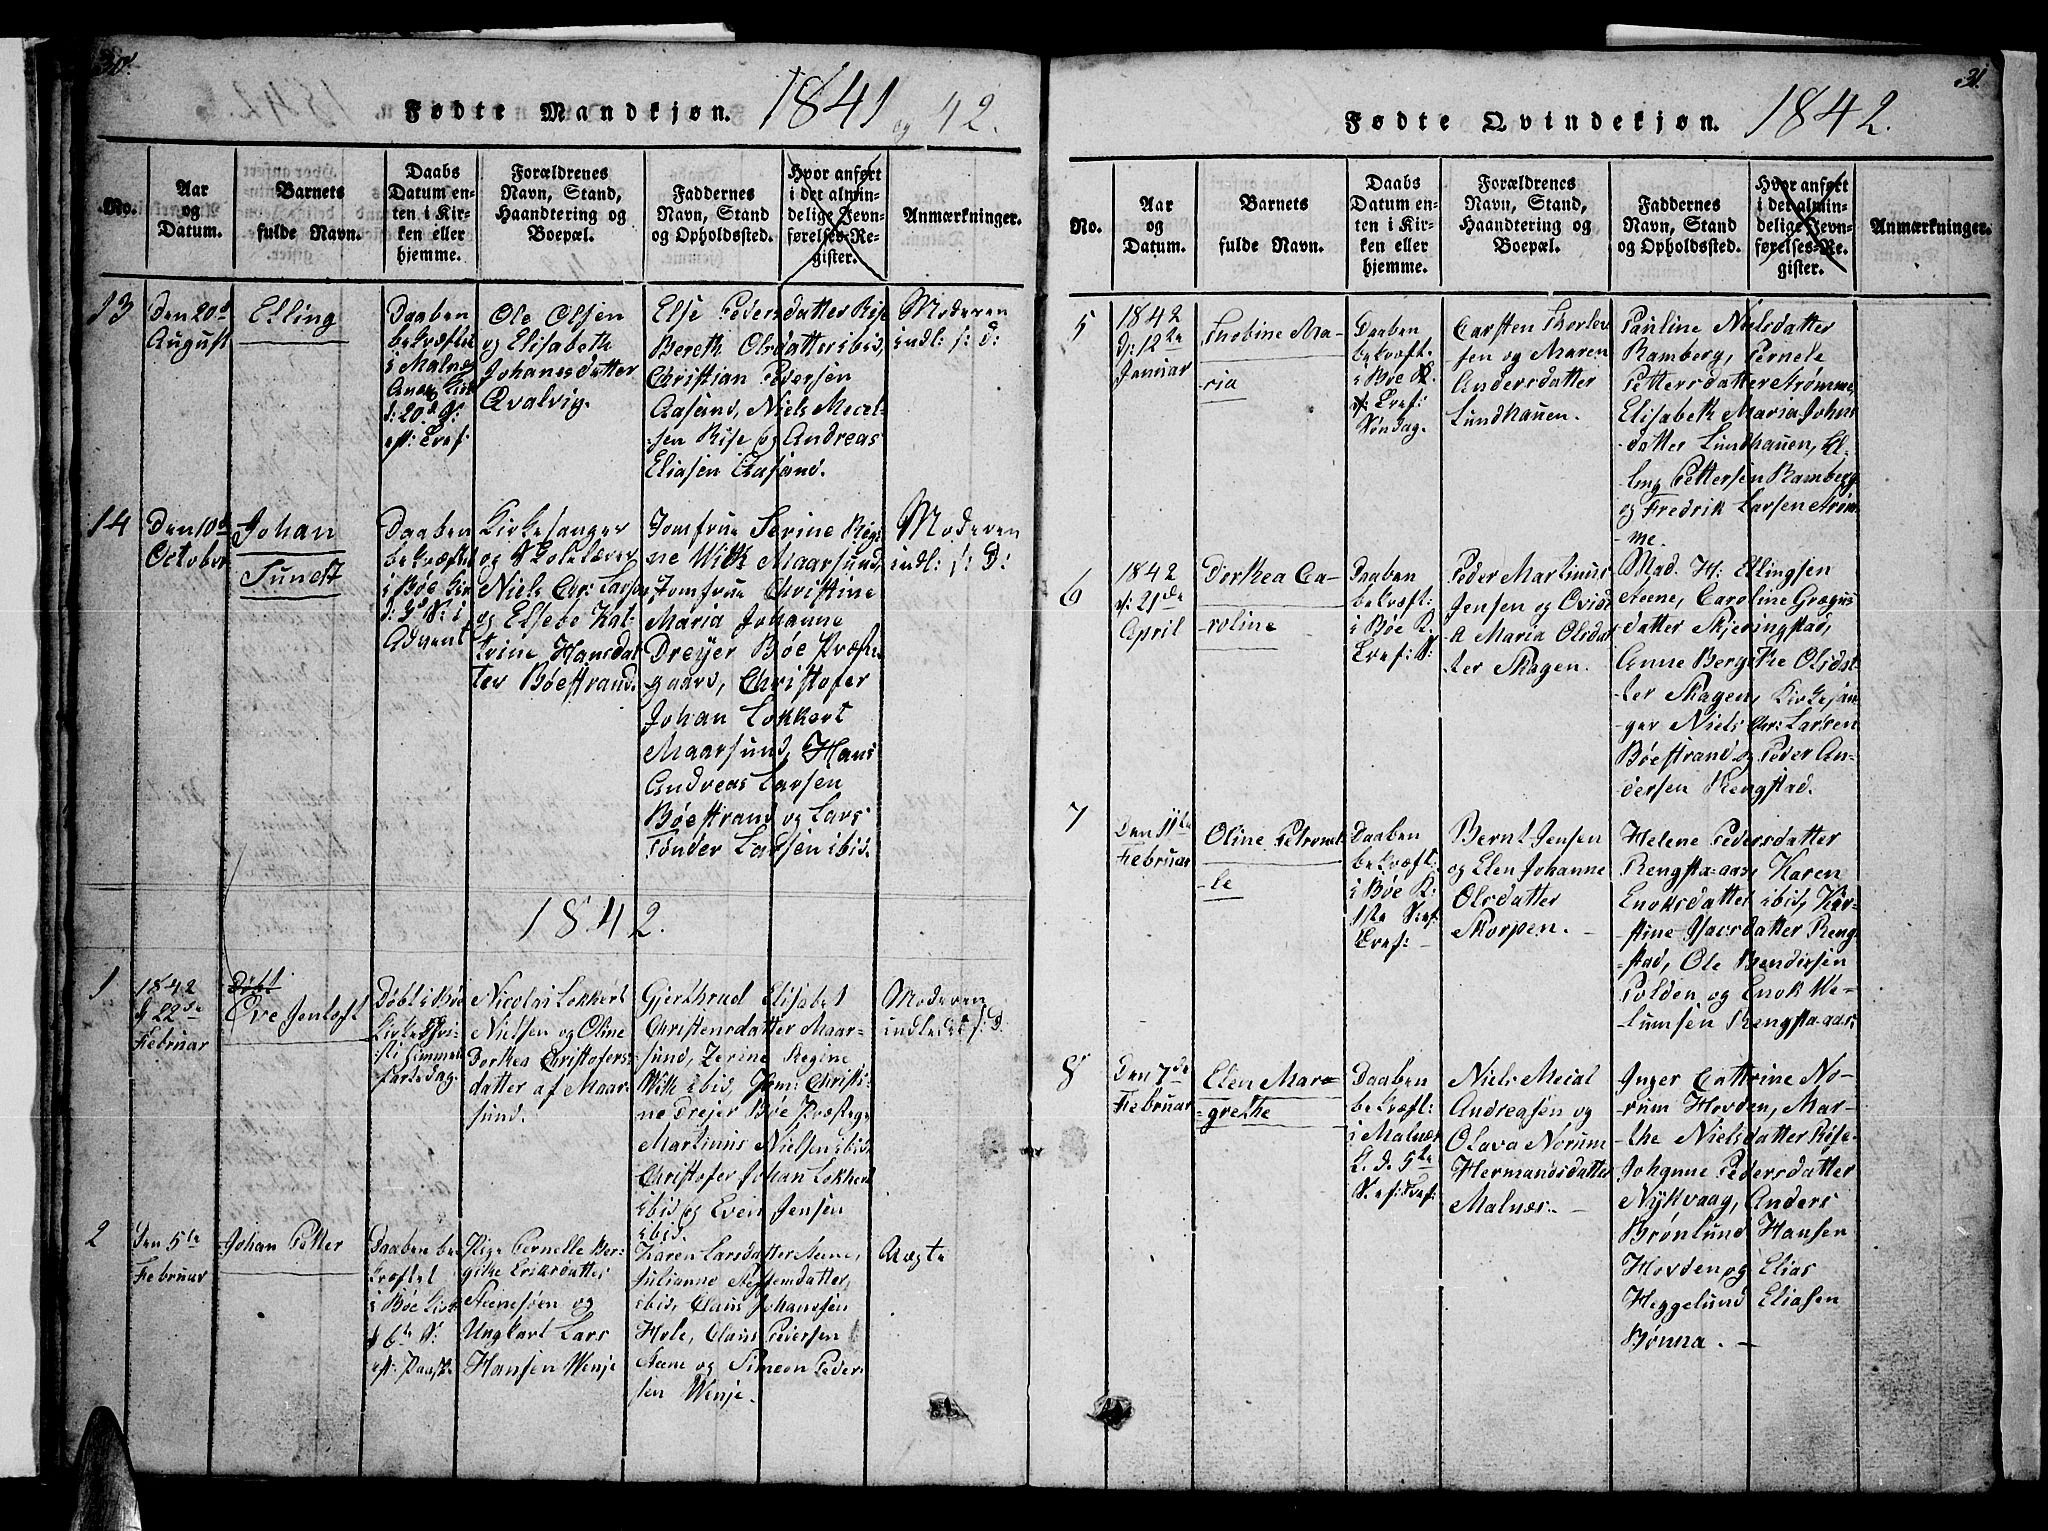 30.
Fødte Mandkjøn. 1841 og 42.
No.
Aar
og
Datum.
Barnets
fulde Navn.
Daabs
Datum en-
ten i Kir-
ken eller
hjemme.
Forældrenes
Navn, Stand,
Haandtering og
Boepæl.
Faddernes
Navn, Stand
og Opholdssted.
Hvor anført
i det almin-
delige Jevn-
førelses-Re-
gister.
Anmærkninger.
13
Den 20de
August
Elling
Daaben
bekræftet
i Malnæs
d: 20de S:
eft: Tref:
Ole Olsen
og Elisabeth
Johanesdatter
Qvalvig.
Else Pedersdatter Rise
Bereth Olsdatter ibid,
Christian Pedersen
Aasand, Niels Mecel-
sen Rise og Andreas
Eliasen Aasand.
Moderen
indl: s: D:
14
Den 10de
October
Johan
Sunest
Daaben
bekræftet
i Bøe Kir
d: 2d S: i
Advent
Kirkesanger
og Skolelærer
Niels Chr: Larsen
og Elsebe Kat-
trine Hansdat-
ter Bøestrand.
Jomfrue Serine Regi-
ne Wiik Maarsund,
Jomfrue Christine
Maria Johanne
Dreyer Bøe Præste-
gaard, Christofer
Johan Lokkert
Maarsund, Hans
Andreas Larsen
Bøestrand og Lars
Tønder Larsen ibid.
Moderen
indl: s: D:
1842.
1
1842
d 22de
Februar
Døbt
Eve Jentoft
Døbt i Bøe
Kirke Chri-
sti Himmel-
fartsdag.
Nicolai Lokkert
Nielsen og Oline
Dorthea Christofers-
datter af Maar-
sund.
Gjerthrud Elisabet
Christensdatter Maar-
sund, Zerine Regine
Wiik ibid, Jom: Christi-
ne Drejer Bøe Præsteg:
Martinus Nielsen ibid,
Christofer Johan Lokkert
ibid og Even Jensen
ibid.
Moderen
indledet s: D:
2
Den 5te
Februar
Johan Petter
Daaben be-
kræftet
i Bøe Kirk
d 6te S:
eft: Paask:
Pige Pernelle Ber-
githe Eriksdatter
Steenesøen og
Ungkarl Lars
Hansen Wenje
Karen Larsdatter Steene,
Julianne Steffensdatter
ibid, Claus Johansen
Hole, Claus Pedersen
Steene og Simeon Peder-
sen Wenje.
Uægte
31.
Fødte Qvindekjøn. 1842.
No.
Aar
og
Datum.
Barnets
fulde Navn.
Daabs
Datum en-
ten i Kir-
ken eller
hjemme.
Forældrenes
Navn, Stand,
Haandtering og
Boepæl.
Faddernes
Navn, Stand
og Opholdssted.
Hvor anført
i det almin-
delige Jevn-
førelses-Re-
gister.
Anmærkninger.
5
1842
d: 12te
Januar
Ma-
ria
Daaben
bekræft.
i Bøe K.
Tref:
Søndag.
Carsten Thorlev
sen og Maren
Andersdatter
Lundhauen.
Pauline Nielsdatter
Ramberg, Pernele
Pettersdatter Strømme,
Elisabeth Maria Johns
datter Lundhauen, El-
ling Pettersen Ramberg
og Fredrik Larsen Strøm-
me.
6
1842
d: 21de
April
Dorthea Ca-
roline
Daaben
bekræft:
i Bøe K.
Tref: S:
Peder Martinus
Jensen og Ovid
a Maria Olsdat
ter Skagen.
Mad. H: Ellingsen
Steene, Caroline Grægus
datter Skjeringstad,
Anne Bergithe Olsdat
ter Skagen, Kirkesan-
ger Niels Chr: Larsen
Bøestrand og Peder An-
dersen Rengstad.
7
Den 11te
Februar
Oline Petronel
le
Daaben
bekræft:
i Bøe K.
1ste S. ef:
Tref:
Bernt Jensen
og Elen Johanne
Olsdatter
Skorpen.
Helene Pedersdatter
Rengstaaas, Karen
Enoksdatter ibid, Kir-
stine Isacsdatter Reng-
stad, Ole Bendixsen
Polden og Enok He-
lumsen Rengstaaas.
8
Den 7de
Februar
Elen Mar-
grethe
Daaben
bekræft:
i Malnæs
K. d. 5te
S. ef: Tref:
Niels Mecal
Andreasen og
Olava Norum
Hermandsdatter
Malnæs.
Inger Cathrine No-
rum Hovden, Mar-
the Nielsdatter Rise
Johanne Pedersdatter
Nykvaag, Anders
Brønlund Hansen
Hovden, og Elias
Heggelund Eliasen
Bønna.